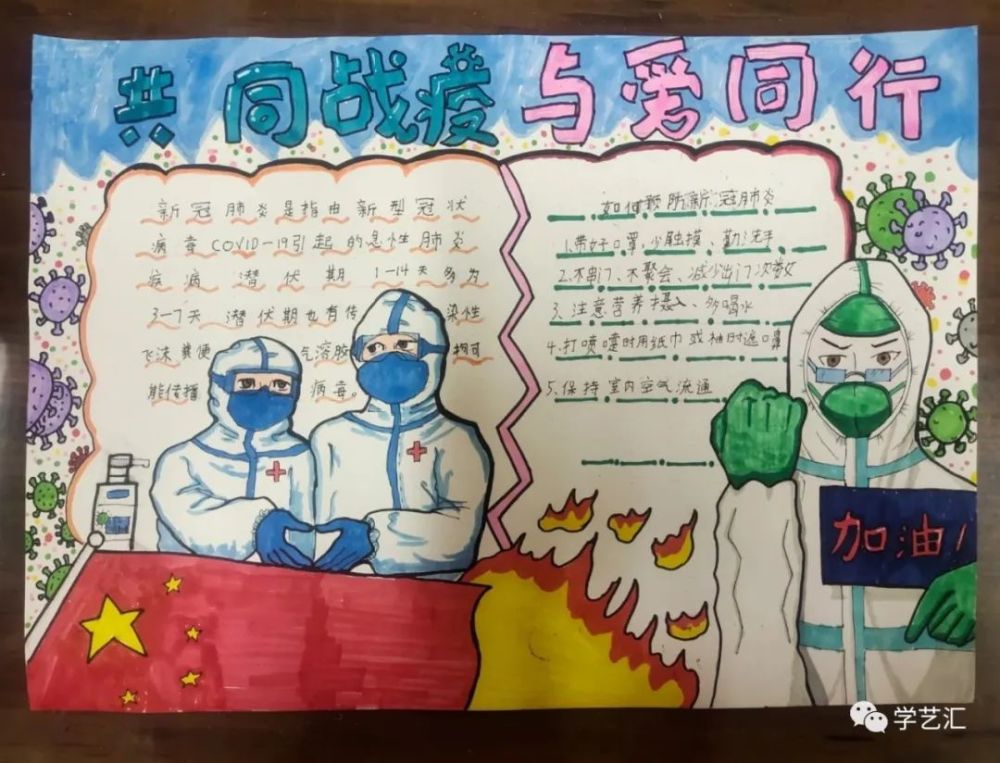 共同战疫与爱同行
新冠肺炎是指由新型冠状
病毒COVID-19引起的急性肺炎
疾病 潜伏期 1-14天多为
3-7天 潜伏期也有传 染性
飞沫 粪便 气溶胶
能传播 病毒。
如何预防新冠肺炎
1.带好口罩,少触摸、勤洗手
2.不串门、不聚会、减少出门次数
3、注意营养摄入、多喝水
4.打喷嚏时用纸巾或袖肘遮
5、保持室内空气流通
加油!
学艺汇